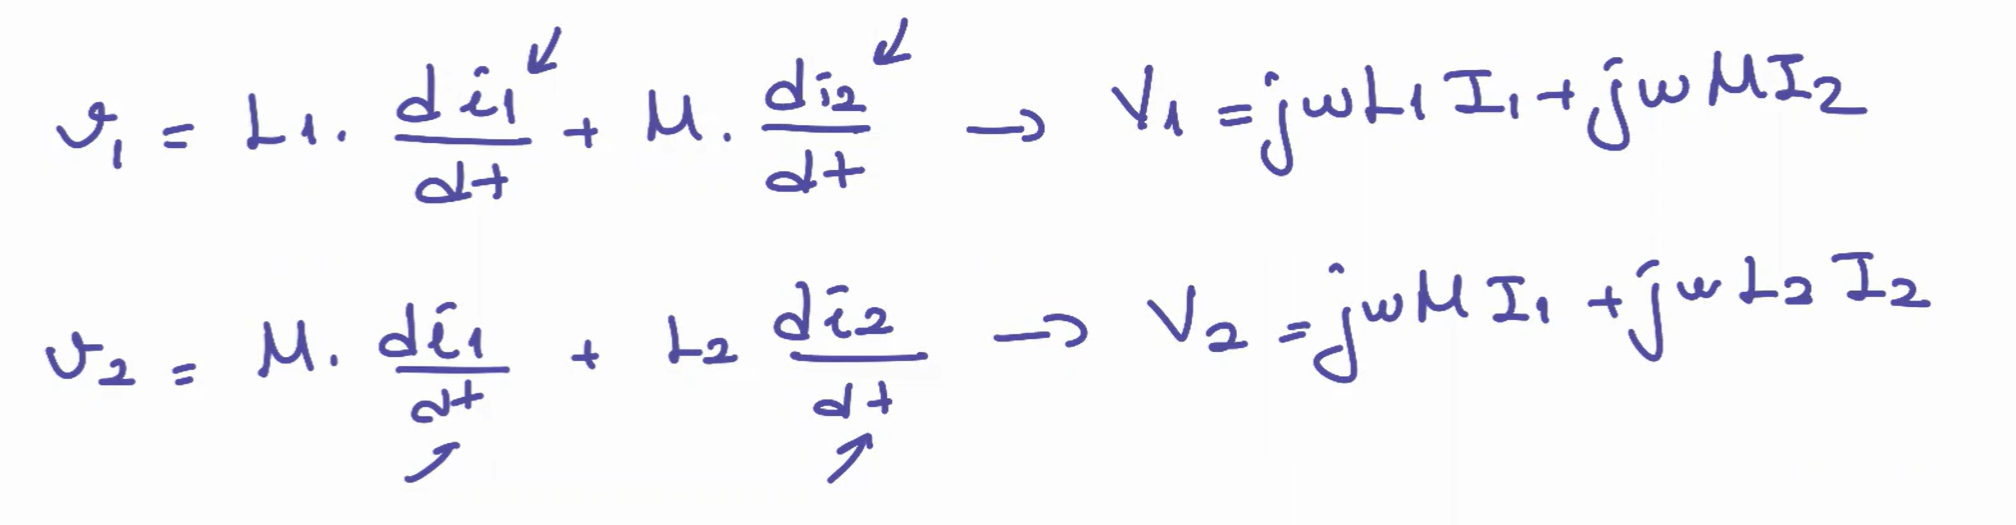 v₁ = L₁ . di₁/dt + M . di₂/dt → V₁ = jwL₁ I₁ + jwMI₂
v₂ = M . di₁/dt + L₂ di₂/dt → V₂ = jwM I₁ + jwL₂ I₂